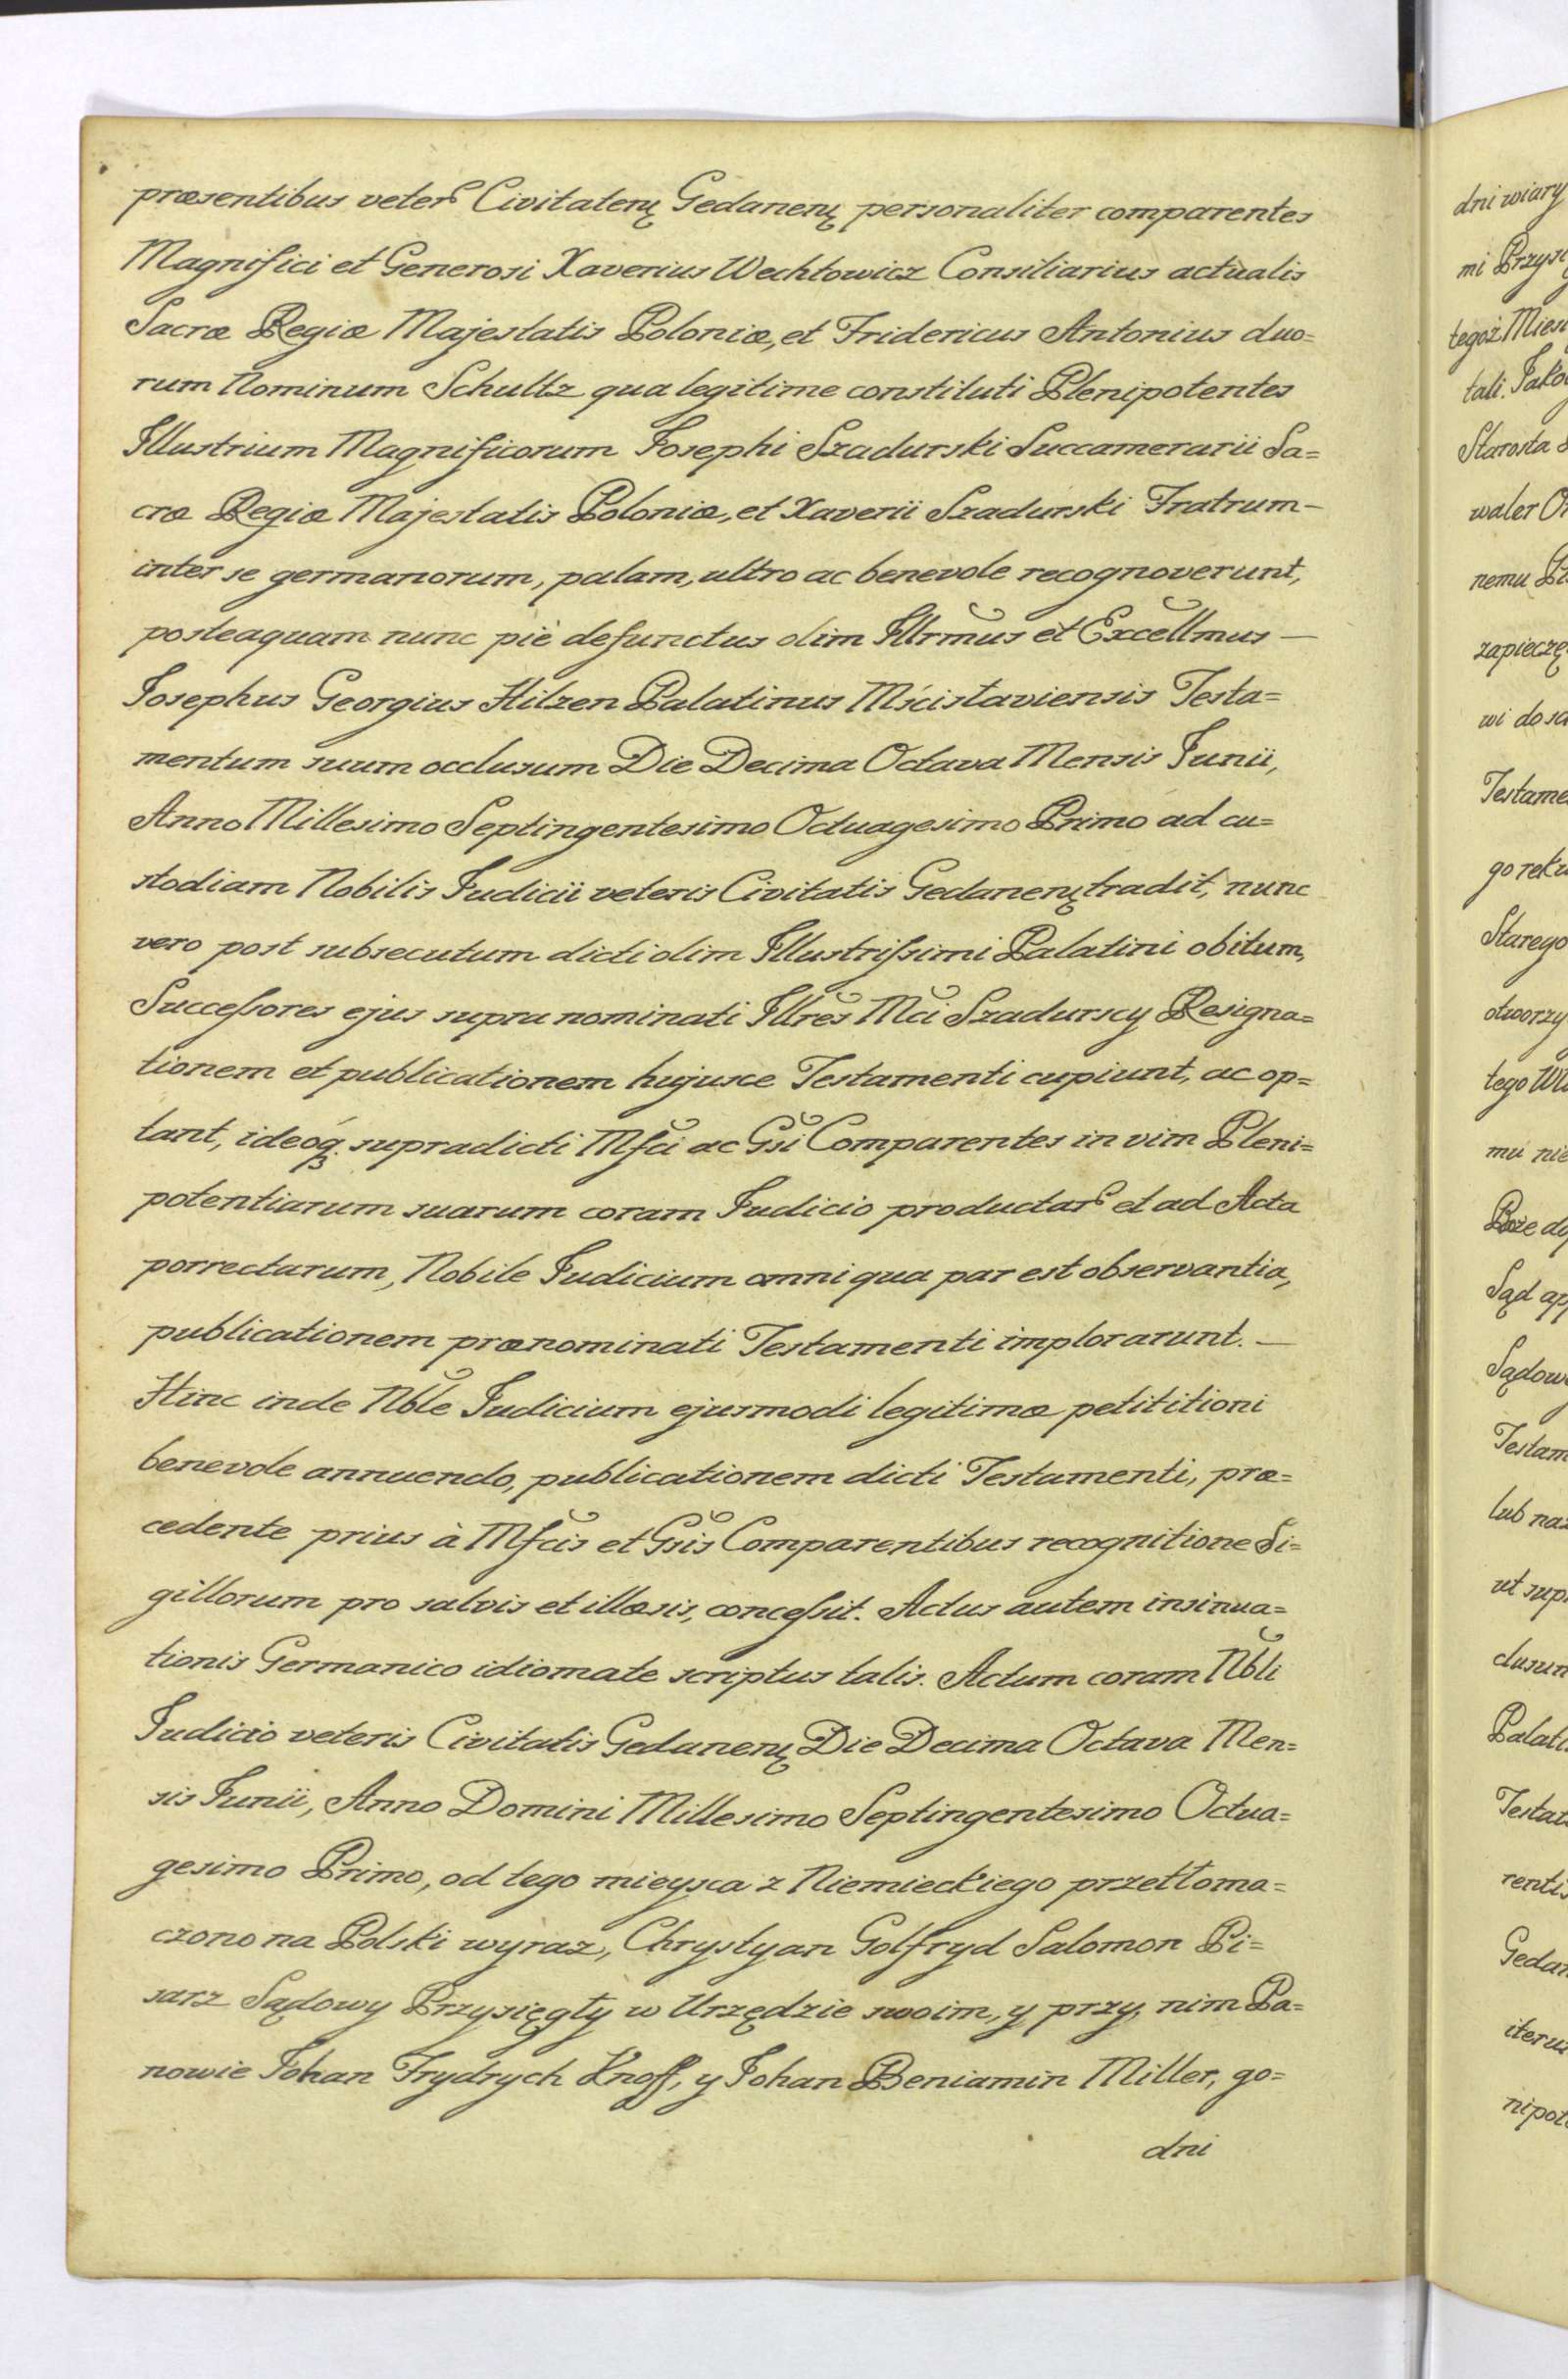 præsentibus veters Civitatenę Gedanenę personaliter comparentes
Magnifici et Generosi Xaverius Wechtowicz Consiliarius actualis
Sacræ Regiæ Majestatis Poloniæ, et Fridericus Antonius duo=
rum Nominum Schultz qua legitime constituti Plenipotentes
Illustrium Magnificorum Josephi Szadurski Succamerarii Sa=
cræ Regiæ Majestatis Poloniæ, et Xaverii Szadurski Fratrum-
inter se germanorum, palam, ultro ac benevole recognoverunt,
posteaquam nunc piè defunctus olim Illrmus et Excellmus —
Josephus Georgius Hilzen Palatinus Mścisłaviensis Testa=
mentum suum occlusum Die Decima Octava Mensis Junii,
Anno Millesimo Septingentesimo Octuagesimo Primo ad cu=
stodiam Nobilis Judicii veteris Civitatis Gedanenę tradit, nunc
vero post subsecutum dicti olim Illustrissimi Palatini obitum,
Successores ejus supra nominati Illres Mci Szadurscy Resigna=
tionem et publicationem hujusce Testamenti cupiunt, ac op=
tant, ideoq. supradicti Mfci ac Gsi Comparentes in vim Pleni=
potentiarum suarum coram Judicio productars et ad Acta
porrectarum, Nobile Judicium omni qua par est observantia,
publicationem prænominati Testamenti implorarunt. —
Hinc inde Nble Judicium ejusmodi legitimæ petititioni
benevole annuendo, publicationem dicti Testamenti, præ=
cedente prius à Mfcis et Gsis Comparentibus recognitione Si=
gillorum pro salvis et illæsis, concessit. Actus autem insinua=
tionis Germanico idiomate scriptus talis. Actum coram Nbli
Judicio veteris Civitatis Gedanenę Die Decima Octava Men=
sis Junii, Anno Domini Millesimo Septingentesimo Octua=
gesimo Primo, od tego mieysca z Niemieckiego przetłoma=
czono na Polski wyraz, Chrystyan Golfryd Salomon Pi=
sarz Sądowy Przysięgły w Urzędzie swoim, y przy nim Pa=
nowie Johan Frydrych Knoff, y Johan Beniamin Miller, go=
dni
dni wiary
mi
tegoż
tali.
Starosta
waler
nemu
wi do
Starego
tego
mu
Boże
Sąd
lub
ut